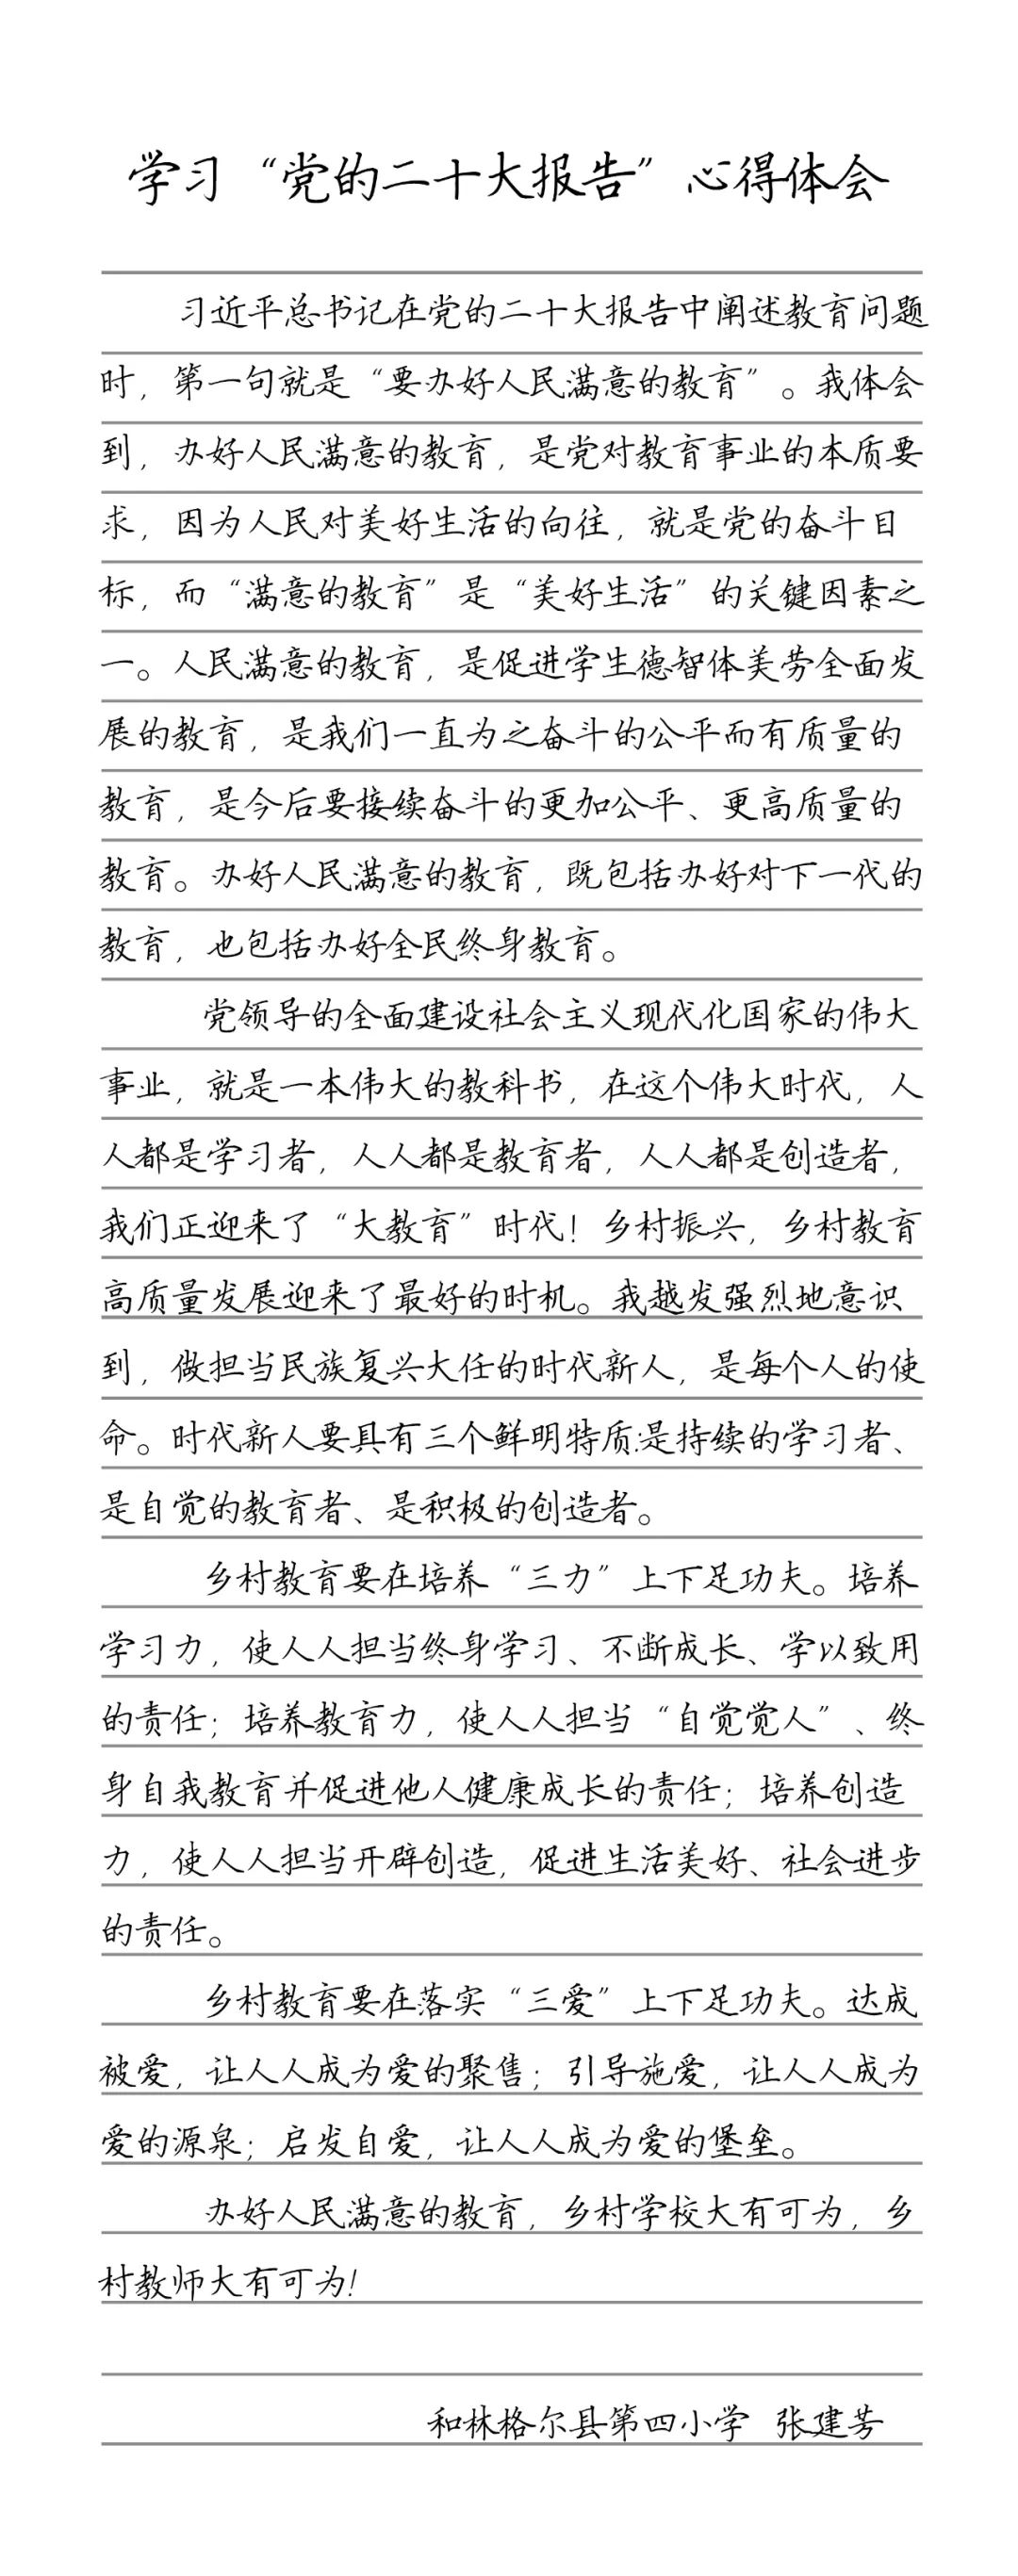 学习“党的二十大报告”心得体会
习近平总书记在党的二十大报告中阐述教育问题
时，第一句就是“要办好人民满意的教育”。我体会
到，办好人民满意的教育，是党对教育事业的本质要
求，因为人民对美好生活的向往，就是党的奋斗目
标，而“满意的教育”是“美好生活”的关键因素之
一。人民满意的教育，是促进学生德智体美劳全面发
展的教育，是我们一直为之奋斗的公平而有质量的
教育，是今后要接续奋斗的更加公平、更高质量的
教育。办好人民满意的教育，既包括办好对下一代的
教育，也包括办好全民终身教育。
党领导的全面建设社会主义现代化国家的伟大
事业，就是一本伟大的教科书，在这个伟大时代，人
人都是学习者，人人都是教育者，人人都是创造者，
我们正迎来了“大教育”时代！乡村振兴，乡村教育
高质量发展迎来了最好的时机。我越发强烈地意识
到，做担当民族复兴大任的时代新人，是每个人的使
命。时代新人要具有三个鲜明特质:是持续的学习者、
是自觉的教育者、是积极的创造者。
乡村教育要在培养“三力”上下足功夫。培养
学习力，使人人担当终身学习、不断成长、学以致用
的责任；培养教育力，使人人担当“自觉觉人”、终
身自我教育并促进他人健康成长的责任；培养创造
力，使人人担当开辟创造，促进生活美好、社会进步
的责任。
乡村教育要在落实“三爱”上下足功夫。达成
被爱，让人人成为爱的聚售；引导施爱，让人人成为
爱的源泉；启发自爱，让人人成为爱的堡垒。
办好人民满意的教育，乡村学校大有可为，乡
村教师大有可为！
和林格尔县第四小学 张建芳